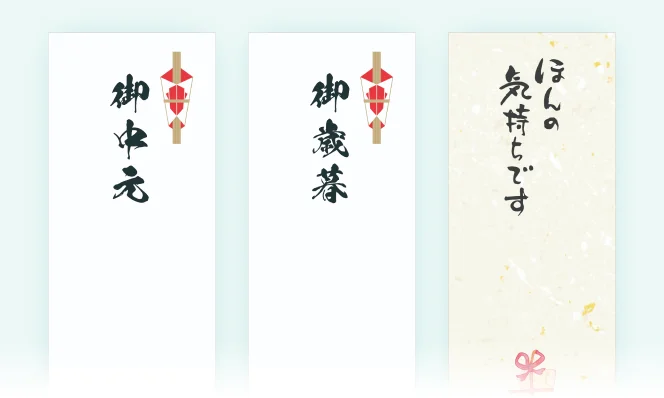 御中元
御歳暮
ほんの
気持ちです